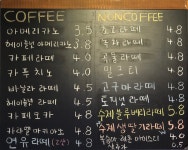 COFFEE
아메리카노 3.5
헤이즐넛 아메리카노 3.8
카페라떼 4.3
카푸치노 4.3
바닐라 라떼 4.5
헤이즐넛 라떼 4.5
카페모카 4.8
카라멜 마끼아또 4.8
연유 라떼 4.8
NONCOFFEE
초코 라떼 4.8
녹차 라떼 4.8
라떼 4.8
밀크티 4.8
고구마 라떼 4.8
토피넛 라떼 4.8
수제 블루베리 라떼 5.8
수제 생딸기 라떼 5.8
4.8